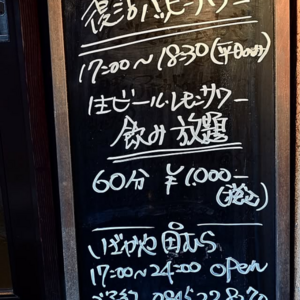 復活ハッピーアワー
17:00〜18:30(平日のみ)
生ビール・レモンサワー
飲み放題
60分 ¥1,000-
(税込)
いざかや 田むら
17:00〜24:00 open
ご予約